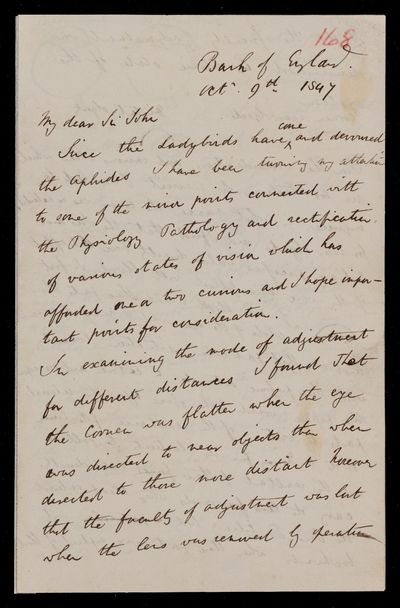 168
Bank of England.
Octr. 9th 1847
My dear Sir John
Since the Ladybirds have come and devoured
the Aphides I have been turning my attention
to some of the minor points connected with
the Physiology Pathology and rectification
of various states of vision which has
afforded one or two curious and I hope impor-
tant points for consideration.
In examining the mode of adjustment
for different distances I found that
the Cornea was flatter when the eye
was directed to near objects than when
directed to those more distant However
that the faculty of adjustment was lost
when the lens was removed by operation